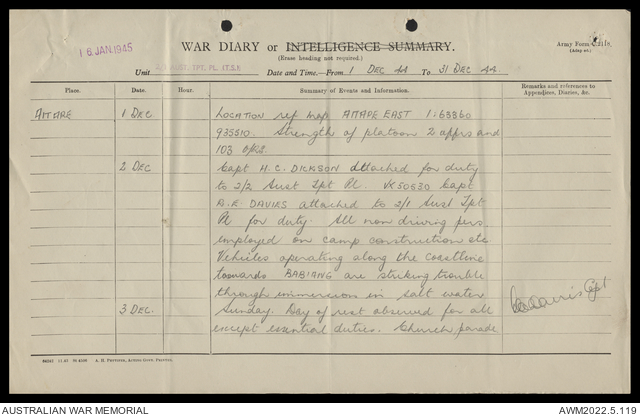 16 JAN 1945
WAR DIARY or INTELLIGENCE SUMMARY.
(Erase heading not required.)
Army Form
Unit TPT. PL. Date and Time—From 1 DEC 44 To 31 DEC 44.
Place. Date. Hour. Summary of Events and Information. Remarks and references to Appendices, Diaries, &c.
AITAPE 1 DEC Location ref map AITAPE EAST 1:63360
935510. Strength of platoon 2 offrs and
103 O/Rs.
2 DEC Capt H.C. DICKSON attached for duty
to 2/2 Aust Tpt Pl. VX50530 Capt
DAVIES attached to 2/1 Aust Tpt
Pl for duty. All non driving pers
employed on camp construction etc
Vehicles operating along the coastline
towards BABIANG are striking trouble
through immersion in salt water
3 DEC. Sunday. Day of rest observed for all
except essential duties. Church parade
Capt
A. H. PETTIFER, ACTING GOVT. PRINTER.
AUSTRALIAN WAR MEMORIAL
AWM2022.5.119